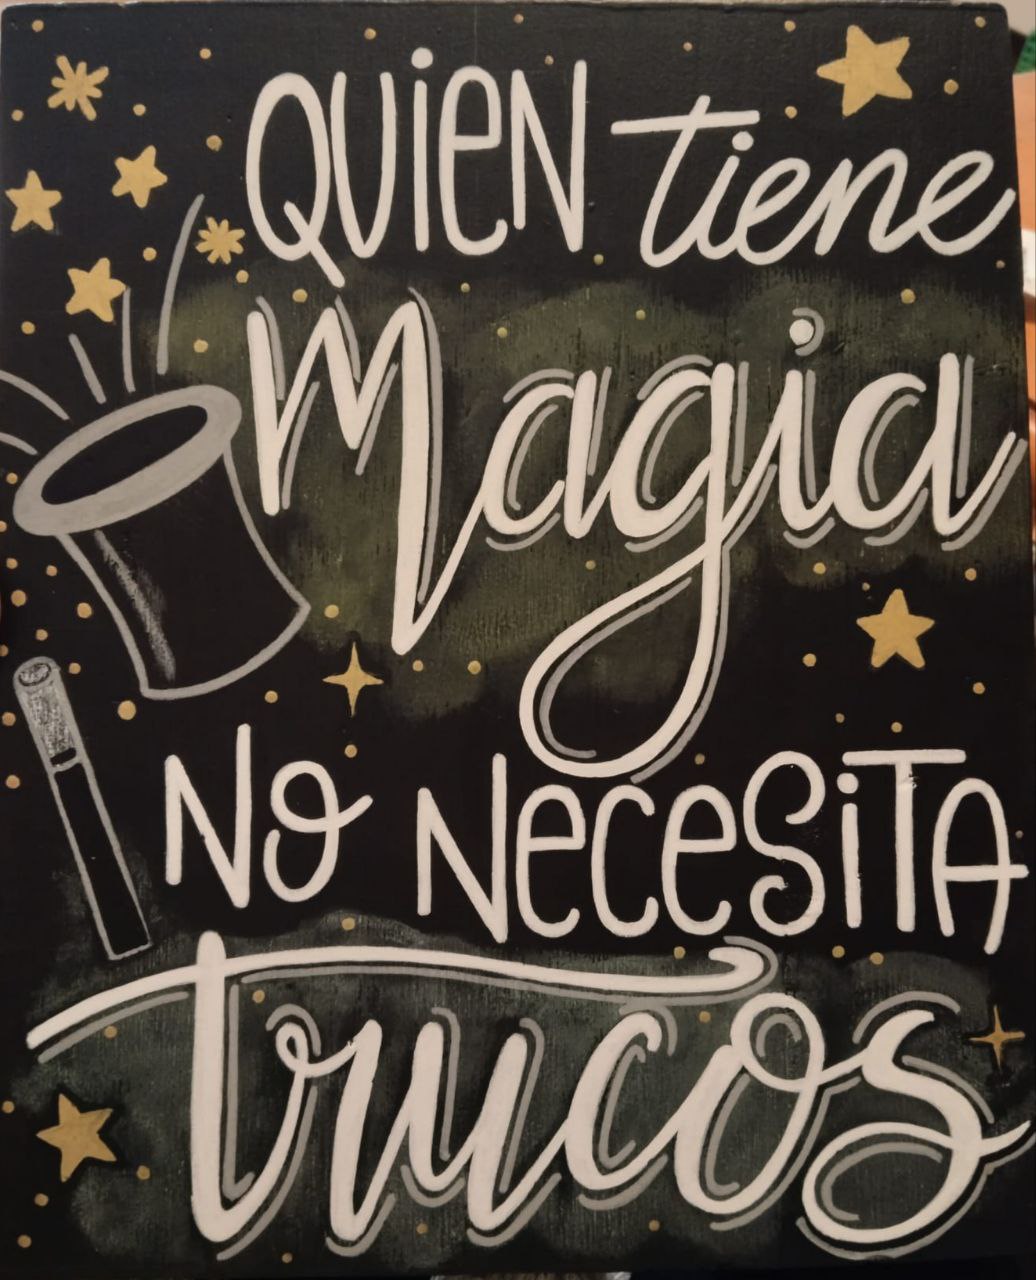 QUIEN tiene
Magia
NO NECESITA
trucos